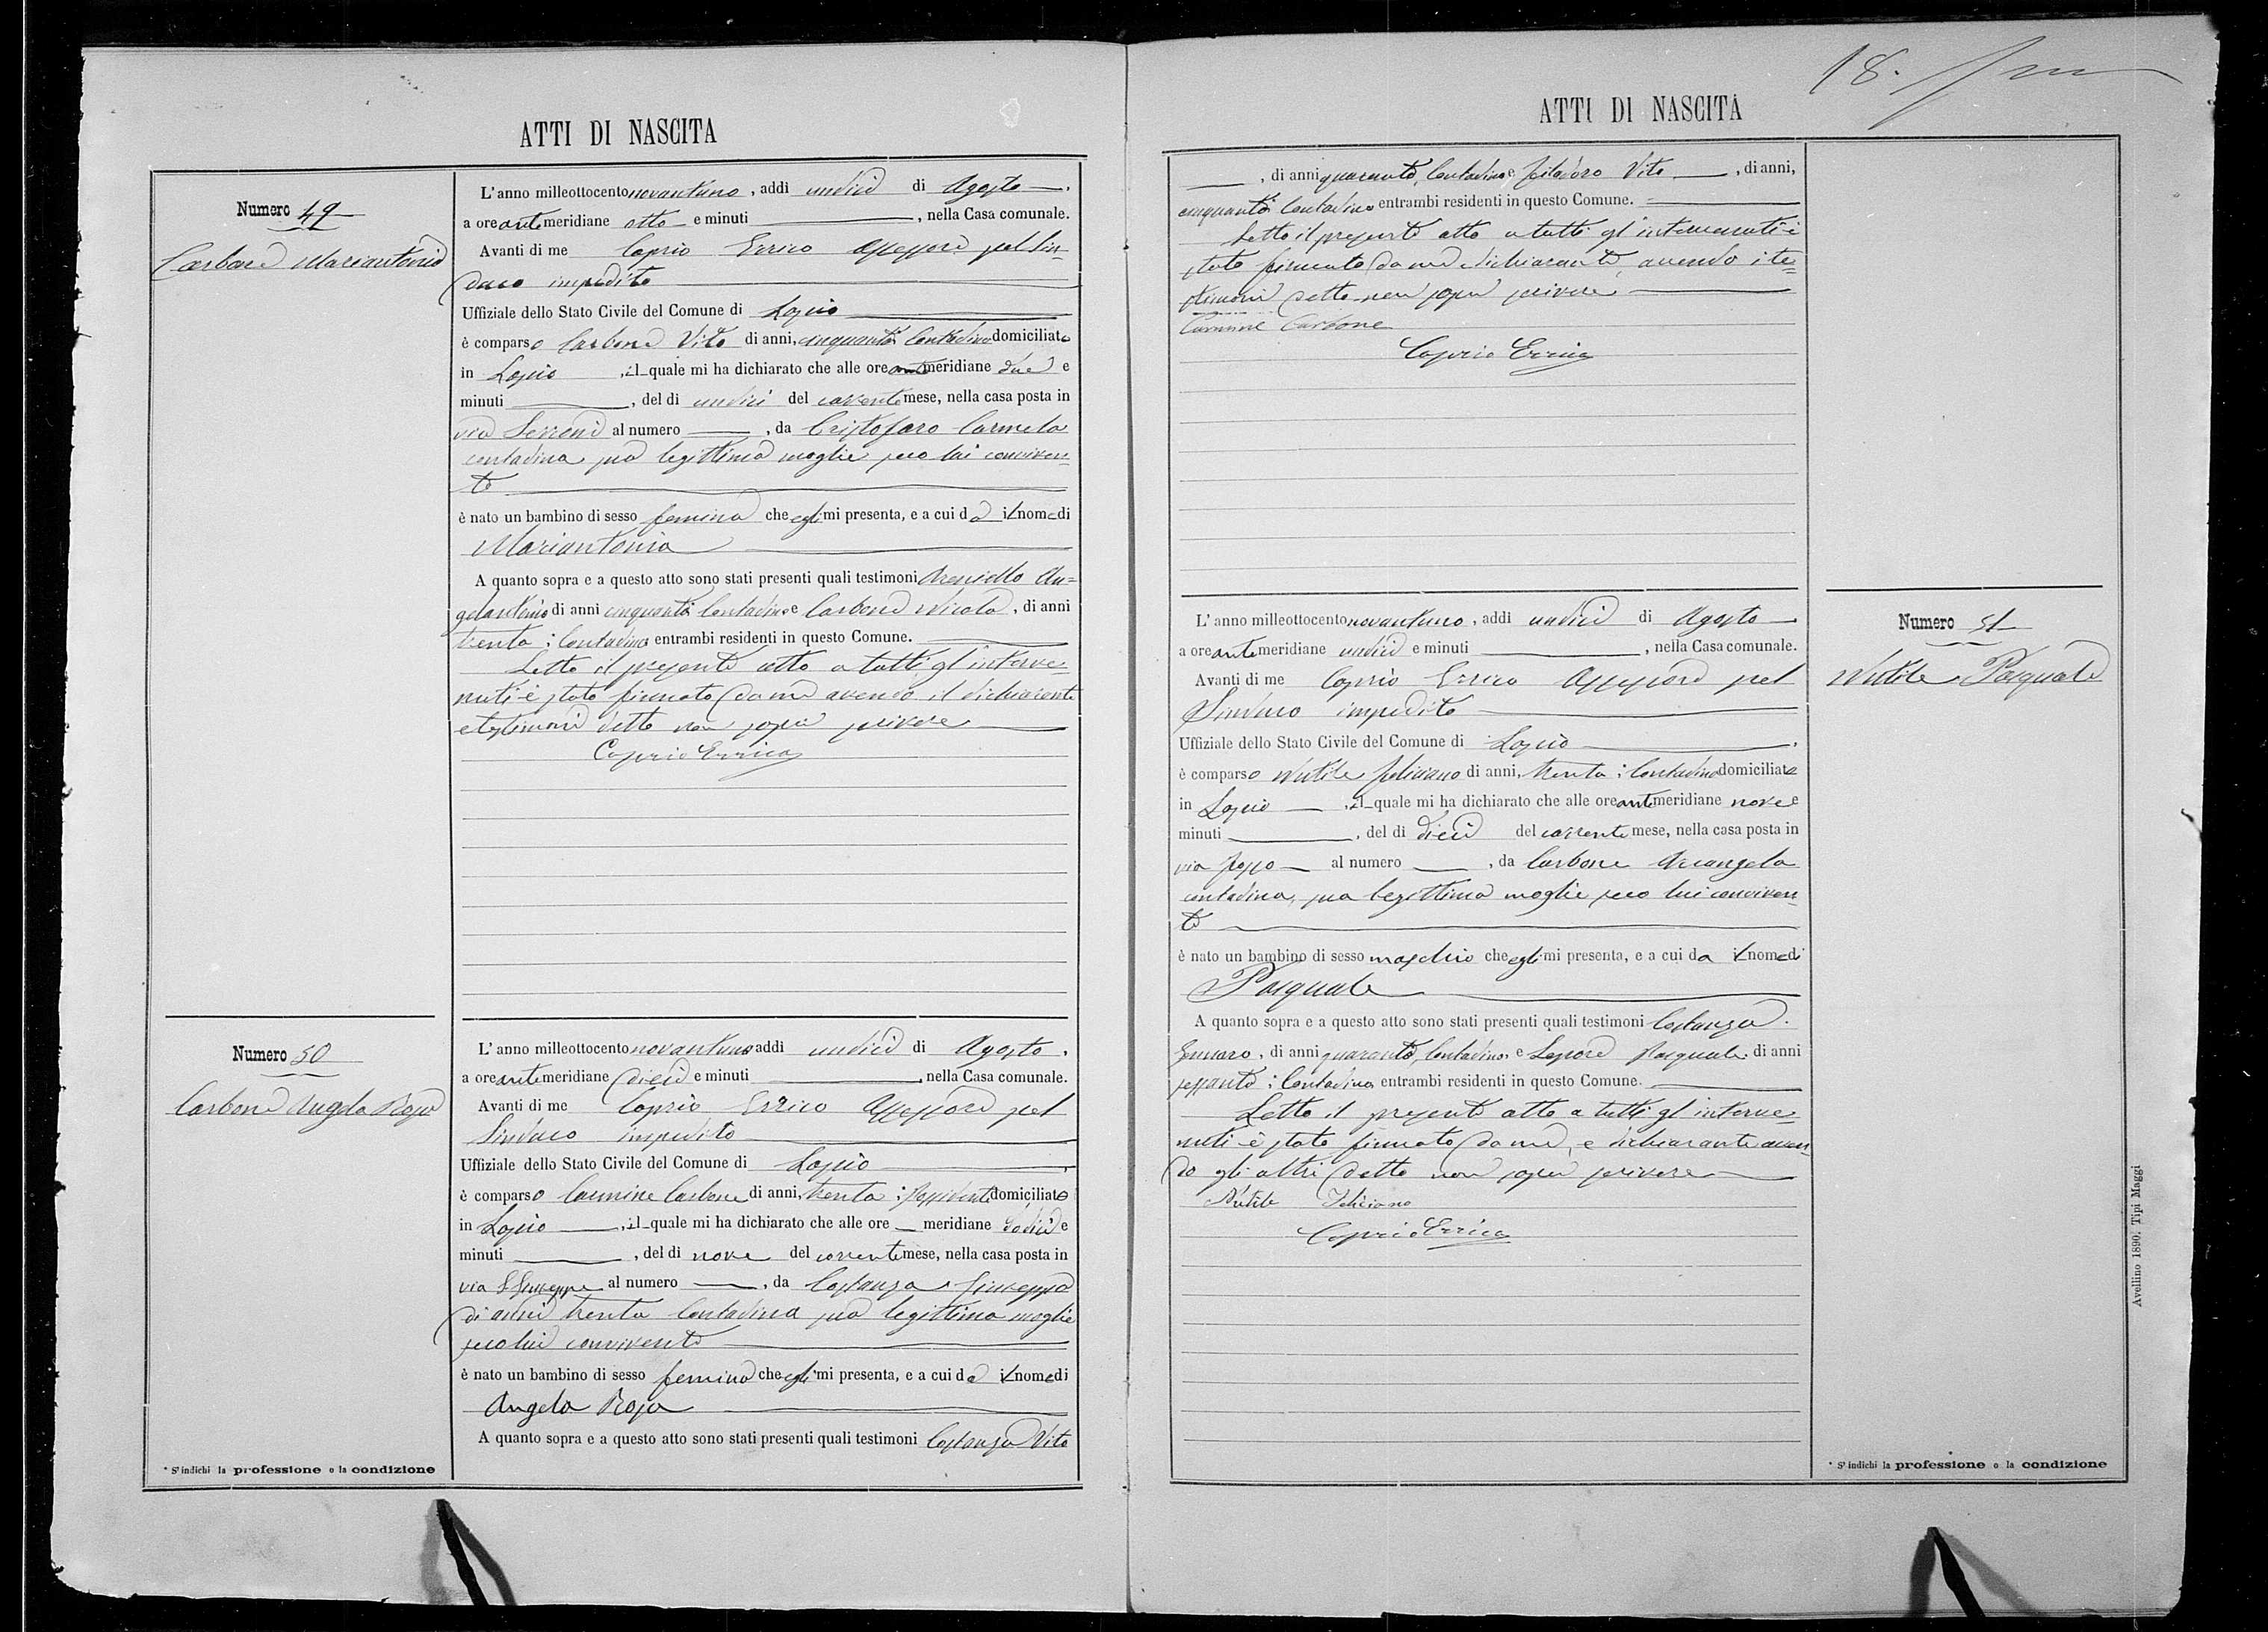 ATTI DI NASCITA
Numero 49
Carbone Mariantonia
L'anno milleottocentonovantuno, addì undici di Agosto
a ore antemeridiane otto e minuti , nella Casa comunale.
Avanti di me Caprio Errico Assessore pel Sin=
daco impedito
Uffiziale dello Stato Civile del Comune di Lapio
è comparso Carbone Vito di anni, cinquanta Contadino domiciliato
in Lapio , il quale mi ha dichiarato che alle ore antemeridiane due e
minuti , del dì undici del corrente mese, nella casa posta in
via al numero , da Cristofaro Carmela
contadina sua legittima moglie seco lui conviven=
te
è nato un bambino di sesso femina che egli mi presenta, e a cui dà il nome di
Mariantonia
A quanto sopra e a questo atto sono stati presenti quali testimoni An=
gelantonio di anni cinquanta Contadino e Carbone Nicola, di anni
trenta: Contadino entrambi residenti in questo Comune.
Letto il presente atto a tutti gl'interve=
nuti è stato firmato da me avendo il dichiarante
e testimoni detto non saper scrivere
Caprio Errico
Numero 50
Carbone Angela Rosa
L'anno milleottocentonovantuno addì undici di Agosto.
a ore antemeridiane dieci e minuti , nella Casa comunale.
Avanti di me Caprio Errico Assessore pel
Sindaco impedito
Uffiziale dello Stato Civile del Comune di Lapio
è comparso Carmine Carbone di anni, trenta: Possidente domiciliato
in Lapio , il quale mi ha dichiarato che alle ore meridiane dodici e
minuti , del dì nove del corrente mese, nella casa posta in
via S. Giuseppe al numero , da Costanza Giuseppa
di anni trenta Contadina sua legittima moglie
seco lui convivente
è nato un bambino di sesso femina che egli mi presenta, e a cui dà il nome di
Angela Rosa
A quanto sopra e a questo atto sono stati presenti quali testimoni Costanza Vito
* S'indichi la professione o la condizione
18.
ATTI DI NASCITA
, di anni quaranta, Contadino e Vito , di anni,
cinquanta Contadino entrambi residenti in questo Comune.
Letto il presente atto a tutti gl'intervenuti è
stato firmato da me e dichiarante, avendo i te=
stimoni detto non saper scrivere
Carmine Carbone
Caprio Errico
Numero 51
Nutile Pasquale
L'anno milleottocentonovantuno, addì undici di Agosto
a ore antemeridiane undici e minuti , nella Casa comunale.
Avanti di me Caprio Errico Assessore pel
Sindaco impedito
Uffiziale dello Stato Civile del Comune di Lapio .
è comparso Nutile Feliciano di anni, trenta: Contadino domiciliato
in Lapio , il quale mi ha dichiarato che alle ore antemeridiane nove e
minuti , del dì dieci del corrente mese, nella casa posta in
via al numero , da Carbone Arcangela
contadina, sua legittima moglie seco lui conviven=
te
è nato un bambino di sesso maschio che egli mi presenta, e a cui da il nome di
Pasquale
A quanto sopra e a questo atto sono stati presenti quali testimoni Costanza
Gennaro, di anni quaranta, Contadino, e Lepore Pasquale di anni
sessanta: Contadino, entrambi residenti in questo Comune.
Letto il presente atto a tutti gl'interve=
nuti è stato firmato da me, e dichiarante aven=
do gli altri detto non saper scrivere
Nutile Feliciano
Caprio Errico
Avellino 1890. Tipi Maggi
* S'indichi la professione o la condizione